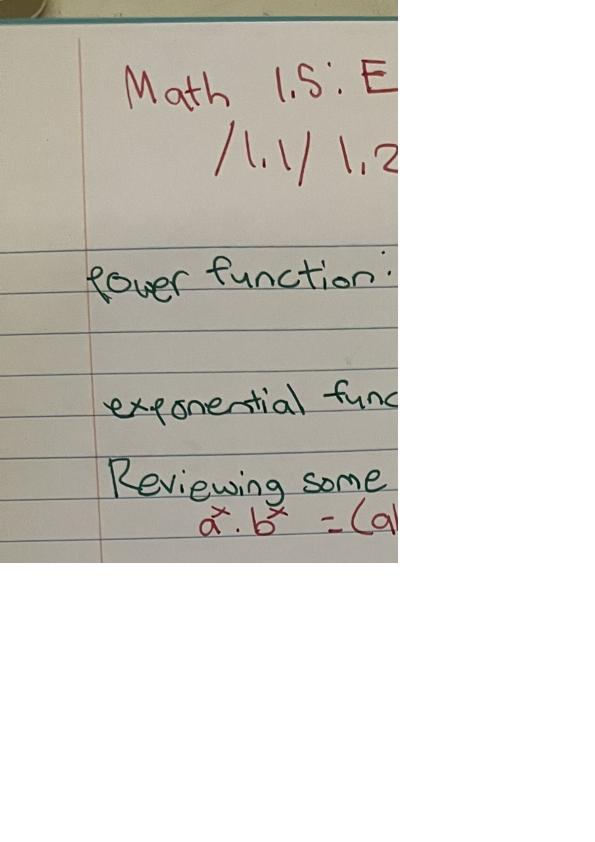 Math 1.5: E
/1.1/ 1.2
power function:
exponential func
Reviewing some
aˣ · bˣ = (a